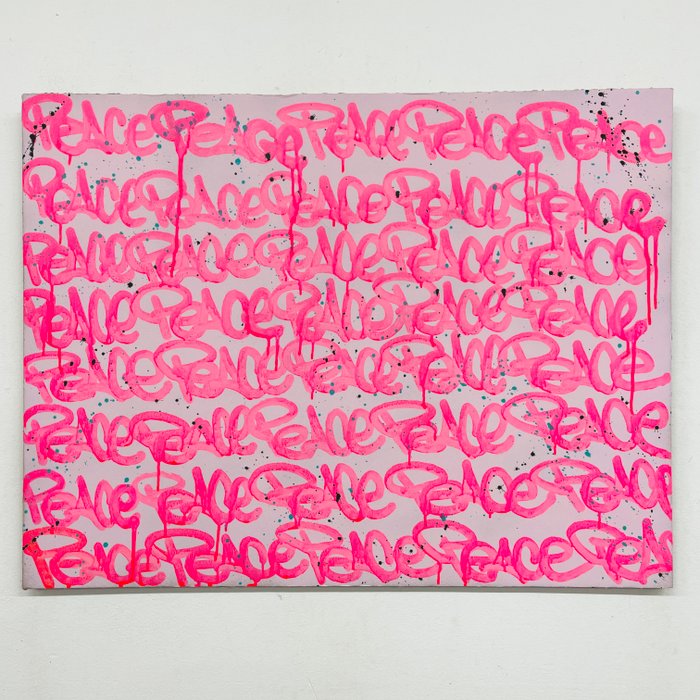 PEACE PEACE PEACE PEACE PEACE
PEACE PEACE PEACE PEACE PEACE
PEACE PEACE PEACE PEACE PEACE
PEACE PEACE PEACE PEACE PEACE
PEACE PEACE PEACE PEACE PEACE
PEACE PEACE PEACE PEACE PEACE
PEACE PEACE PEACE PEACE PEACE
PEACE PEACE PEACE PEACE PEAC